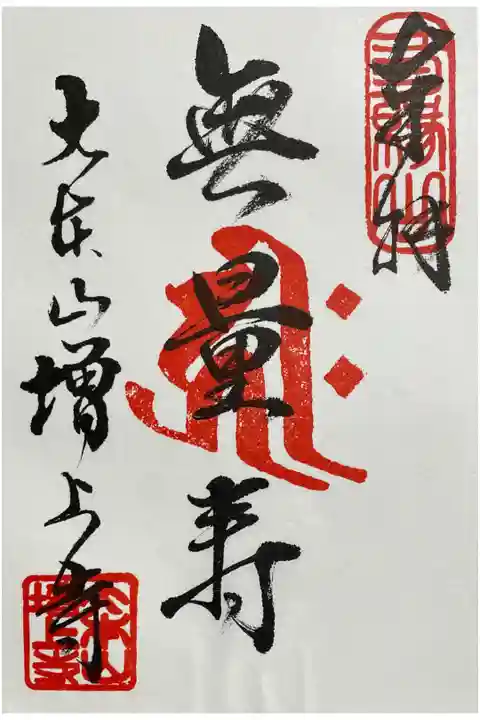 奉拝
無量寿
大本山増上寺